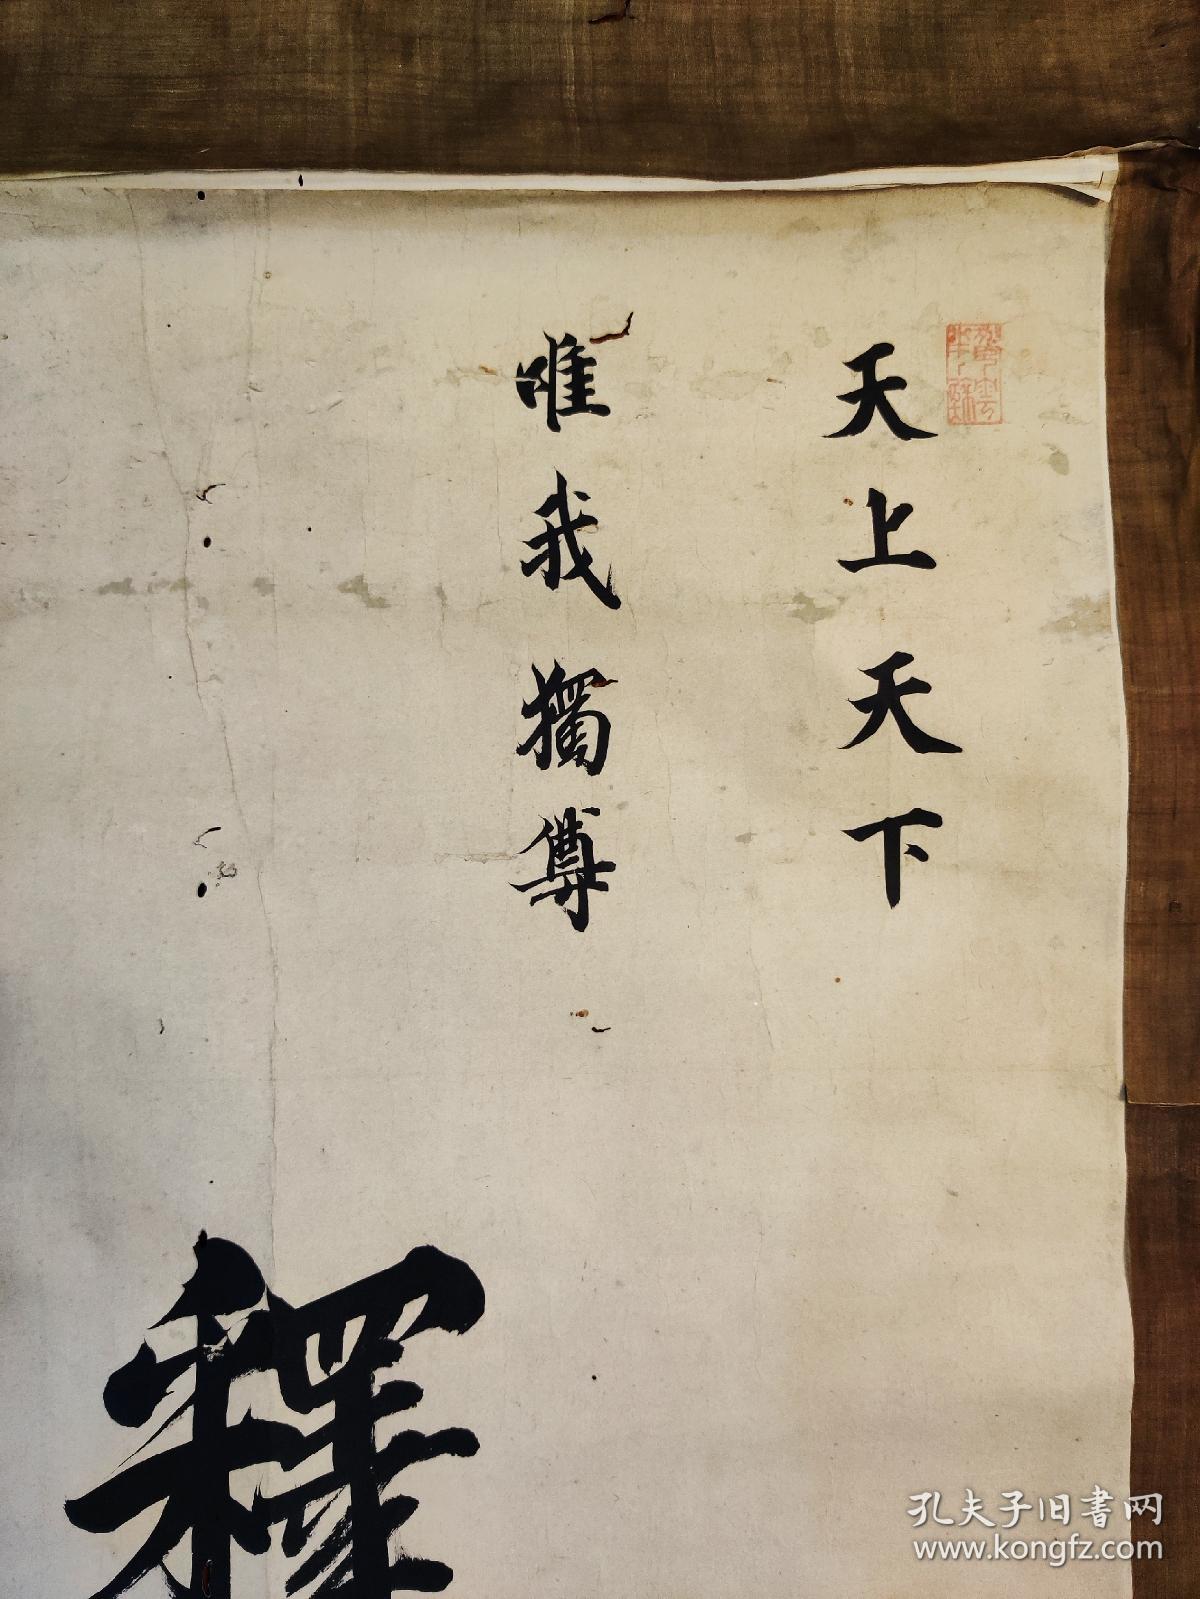 天上天下
唯我獨尊
釋
孔夫子旧書网
www.kongfz.com